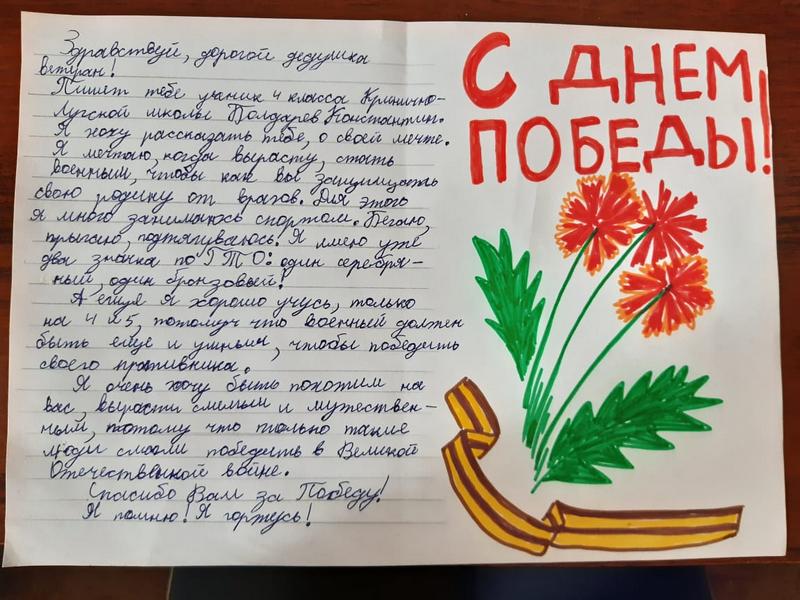 Здравствуй, дорогой дедушка
ветеран!
Пишет тебе ученик 4 класса Кринично-
Лугской школы Полдарев Константин.
Я хочу рассказать тебе, о своей мечте.
Я мечтаю, когда вырасту, стать
военным, чтобы как вы защищать
свою родину от врагов. Для этого
я много занимаюсь спортом. Бегаю,
прыгаю, подтягиваюсь. Я имею уже
два значка по ГТО: один серебря-
ный, один бронзовый!
А ещё я хорошо учусь, только
на 4 и 5, потому что военный должен
быть ещё и умным, чтобы победить
своего противника.
Я очень хочу быть похожим на
вас, вырасти смелым и мужествен-
ным, потому что только такие
люди смогли победить в Великой
Отечественной войне.
Спасибо Вам за Победу!
Я помню! Я горжусь!
С ДНЕМ
ПОБЕДЫ!